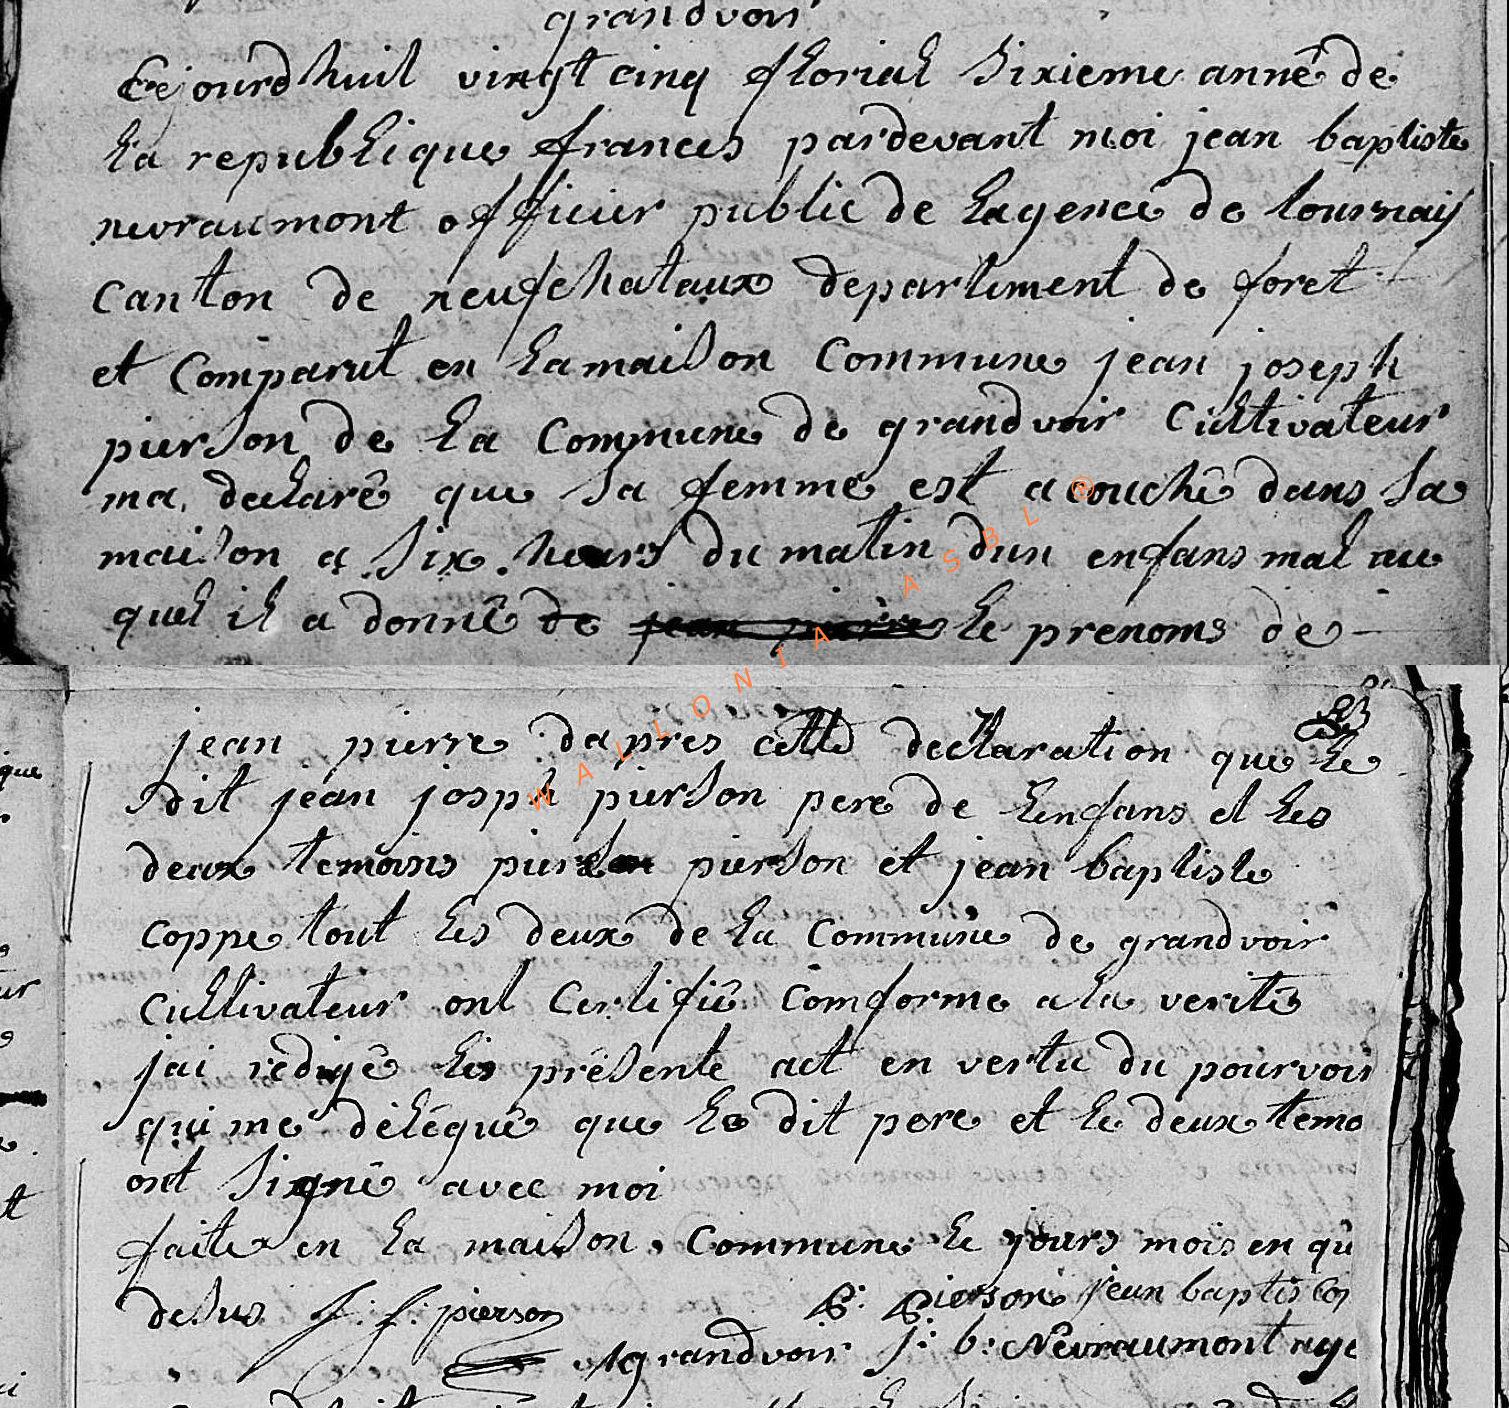 grandvoir
Cejourdhuil vingt cinq florial sixieme annê de
la republique frances pardevant moi jean baptiste
nevraumont officier public de lagence de tournay
canton de neufchataux departement de foret
et comparut en lamaison commune jean joseph
pierson de la commune de grandvoir cultivateur
ma declarê que sa femme est acouchê dans sa
maison a six heurs du matin dun enfans mal au
quel il a donnê de jean pierre le prenoms de
jean pierre dapres cette declaration que le
dit jean josph pierson pere de lenfans et les
deux temoins pierson et jean baptiste
coppe tout les deux de la commune de grandvoir
cultivateur ont certifiê comforme a la veritê
jai redigê les présente act en vertu du pourvoir
qui me délêguê que le dit pere et le deux temo
ont signê avec moi
faite en la maison commune le jours mois en qû
desus J: J: pierson P: pierson jean baptis cop
Agrandvoir j: b: Nevraumont age
WALLONIA ASBL ®